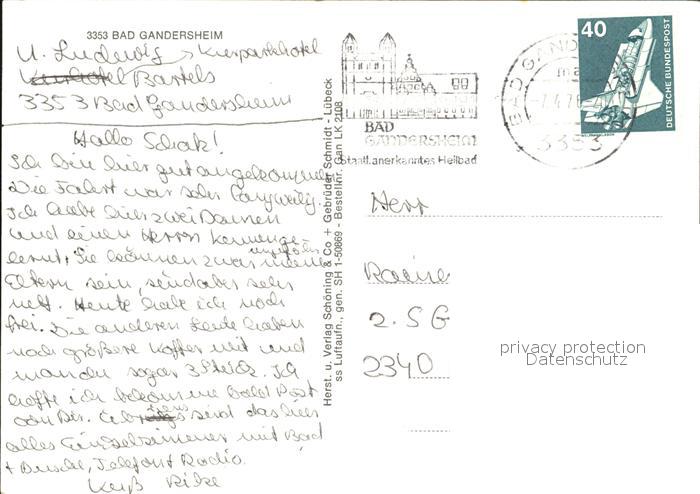 3353 BAD GANDERSHEIM
U. Ludewig > Kurparkhotel
Kurhotel Bartels
3353 Bad Gandersheim
Hallo Schatz!
Ich bin hier gut angekommen.
Die Fahrt war sehr langweilig.
Ich habe hier zwei Damen
und einen Herrn kennenge
lernt. Sie könnten zwar meine
ungefähr
Eltern sein, sind aber sehr
nett. Heute habe ich noch
frei. Die anderen Leute haben
noch größere Koffer mit und
manche sogar 3 Stück. Ich
hoffe ich bekomme bald Post
von Dir. Übrigens sind das hier
alles Einzelzimmer mit Bad
+ Dusche, Telefon + Radio.
Herst. u. Verlag Schöning & Co + Gebrüder Schmidt - Lübeck
ss Luftaufn., gen. SH 1-50869 - Bestellnr. Gan LK 2108
BAD
GANDERSHEIM
Staatl. anerkanntes Heilbad
BAD GAN
3353
40
DEUTSCHE BUNDESPOST
Herr
Raine
2. SG
2340
privacy protection
Datenschutz